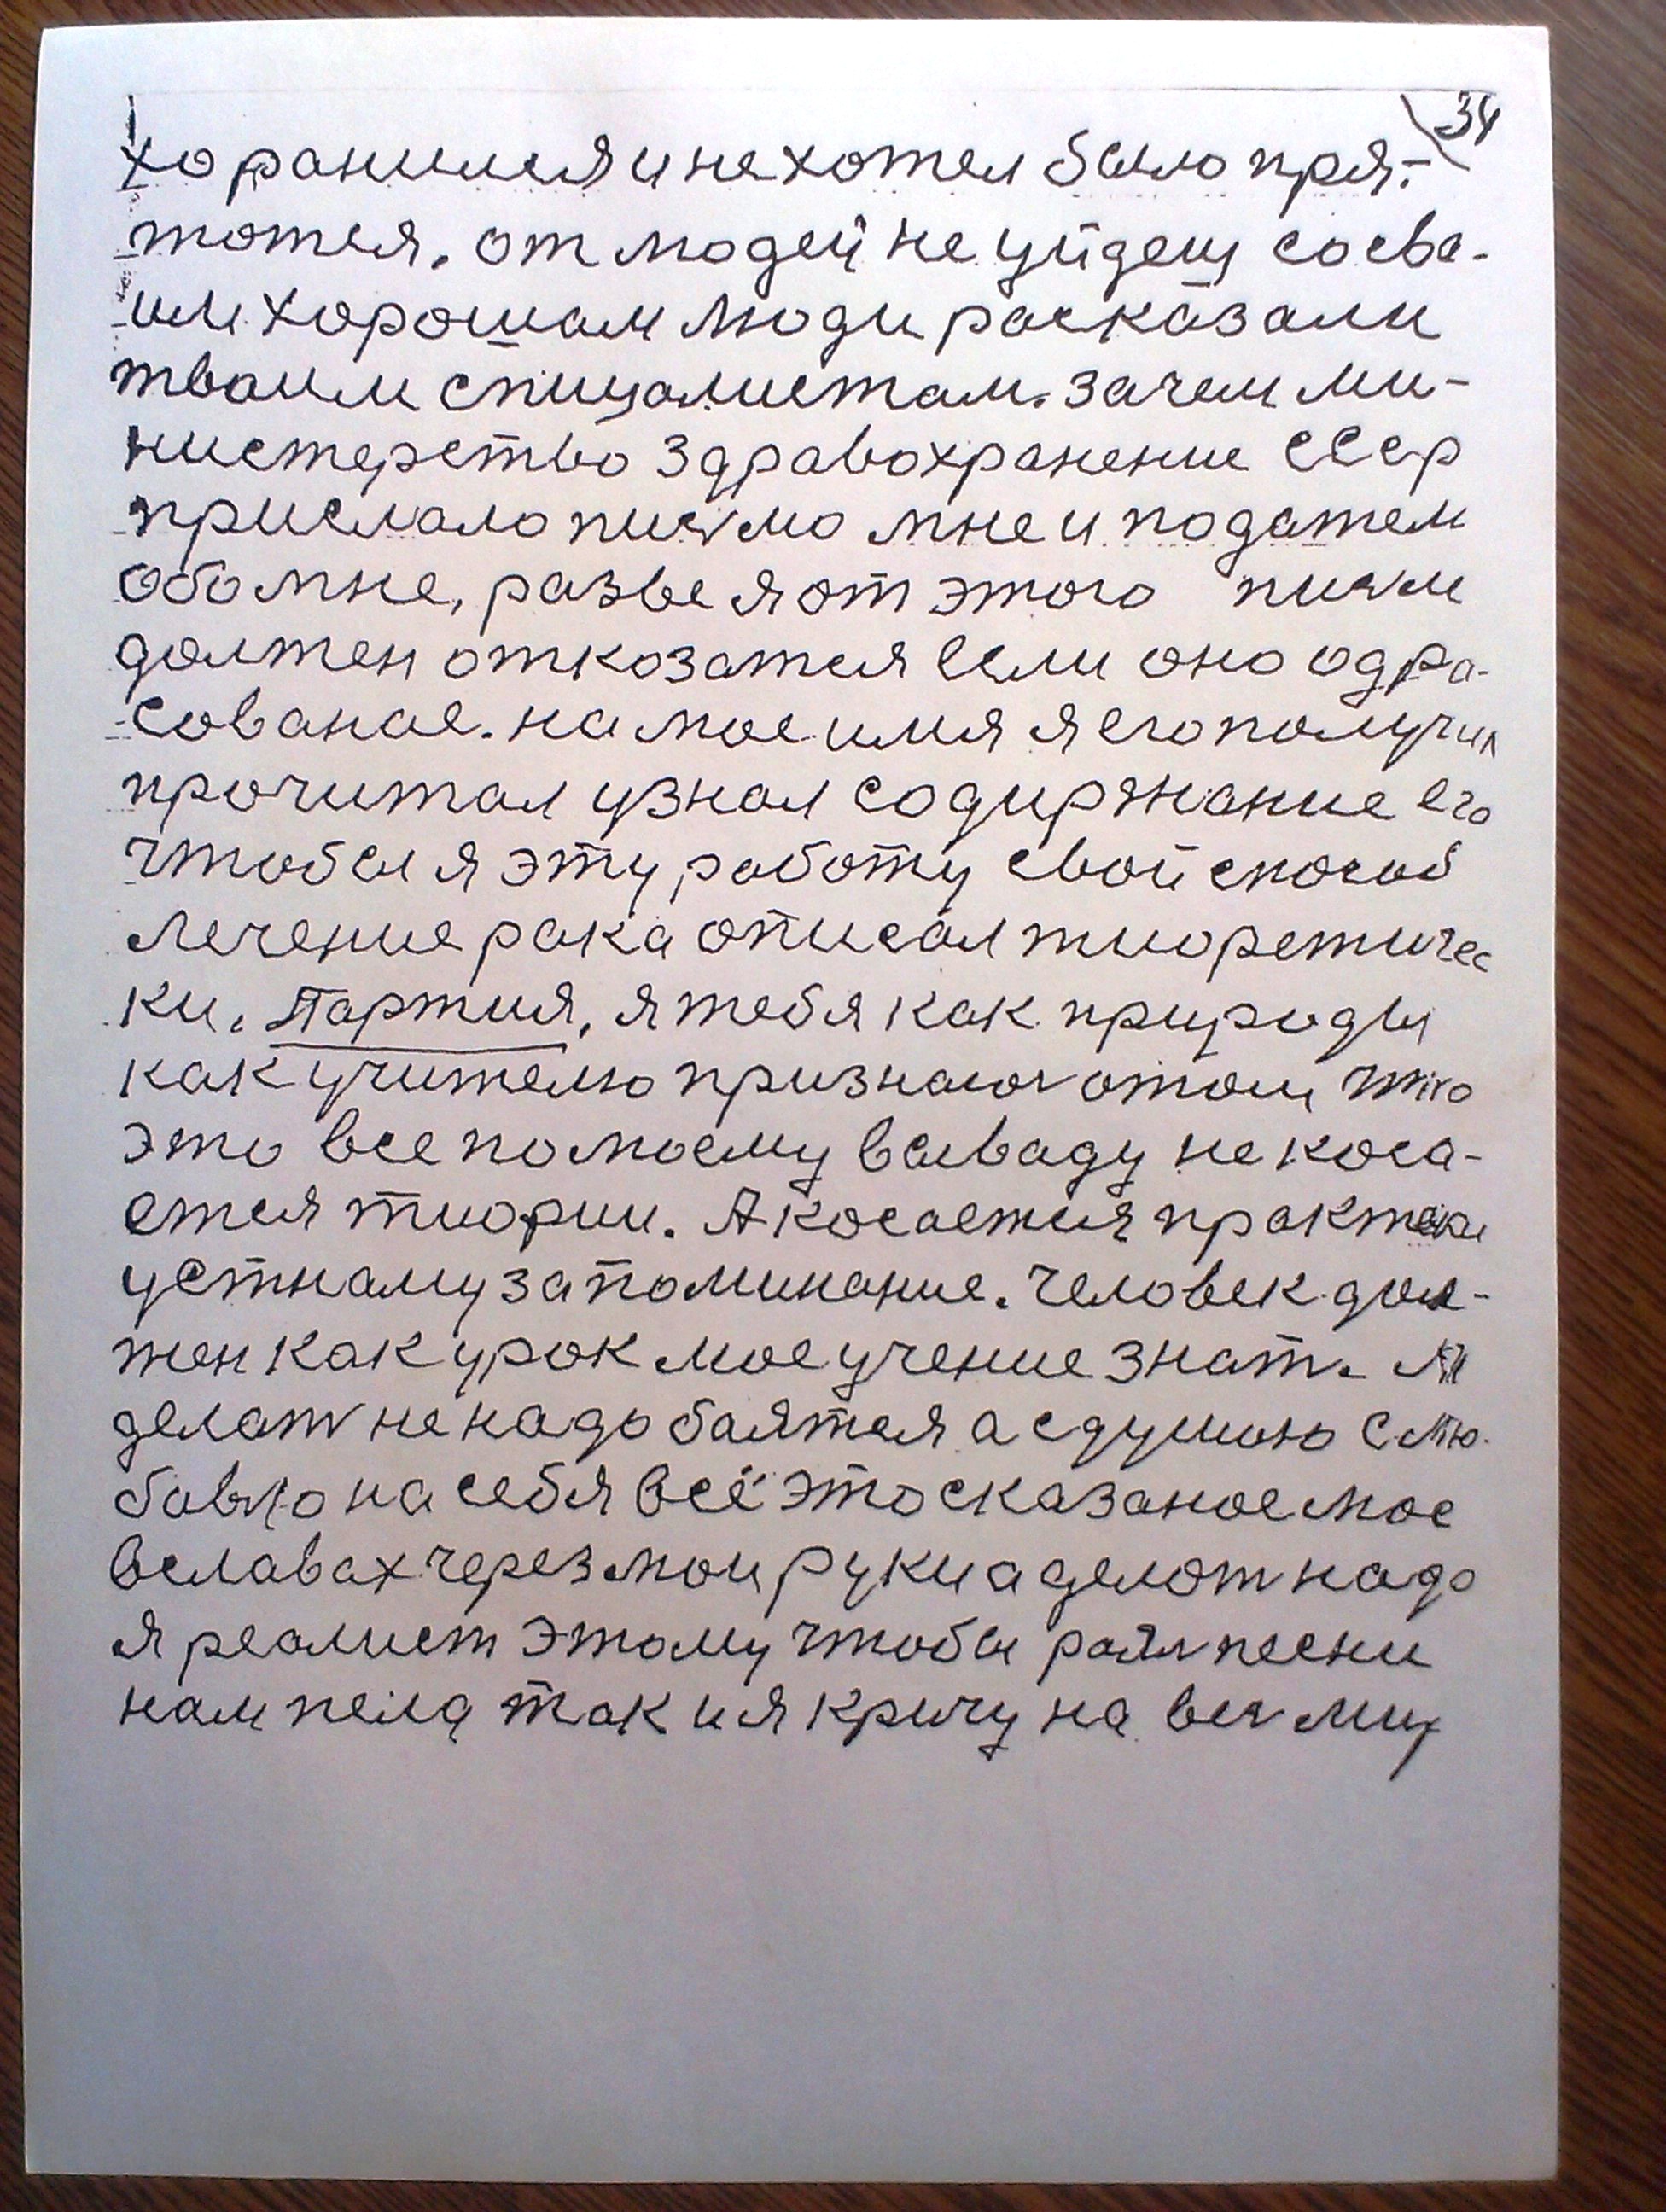 34
хоранился и не хотел было пря-
тотся. от людей не уйдеш со сва-
им хорошам люди расказали
тваим спицалистам. зачем ми-
нистерство здравохранение СССР
прислало писмо мне и податем
обо мне, разве я от этого писм
должен отказатся если оно одра-
сованое. на мое имя я его получил
прочитал узнал содиржание его
чтобы я эту работу свой способ
лечение рака описал тиоретичес
ки. Партия, я тебя как природы
как учителю признаюсь о том что
это все по моему вываду не коса-
ется тиории. А косается практики
устнаму запоминание. Человек дол-
жен как урок мое учение знат.
делат не надо боятся а с душою с лю-
бовю на себя всё это сказаное мое
в славах через мои руки а делат надо
я реалист этому чтобы раял песни
нам пела так и я кричу на вес мир